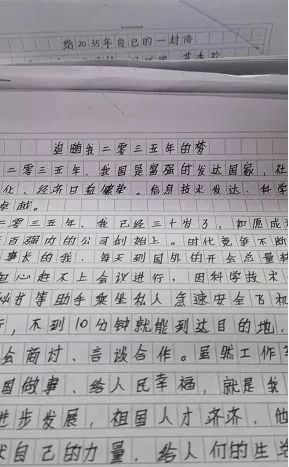 给2035年自己的一封信
追瞧我二零三五年的梦
二零三五年，我国是富强的发达国家，社
化、经济日益 。信息技术发达、科学
卓越。
二零三五年，我已经三十岁了，如愿成为
百强内的公司创始上。时代竞争不断
事长的我，每天到国外的开会总量
担心赶不上会议进行，因科学技术
秘书等助手乘坐私人急速安全飞机
行，不到10分钟就能到达目的地，
会商讨、言谈合作。虽然工作
国做事、给人民幸福，就是我
进步发展，祖国人才济济，他
献自己的力量，给人们的生活